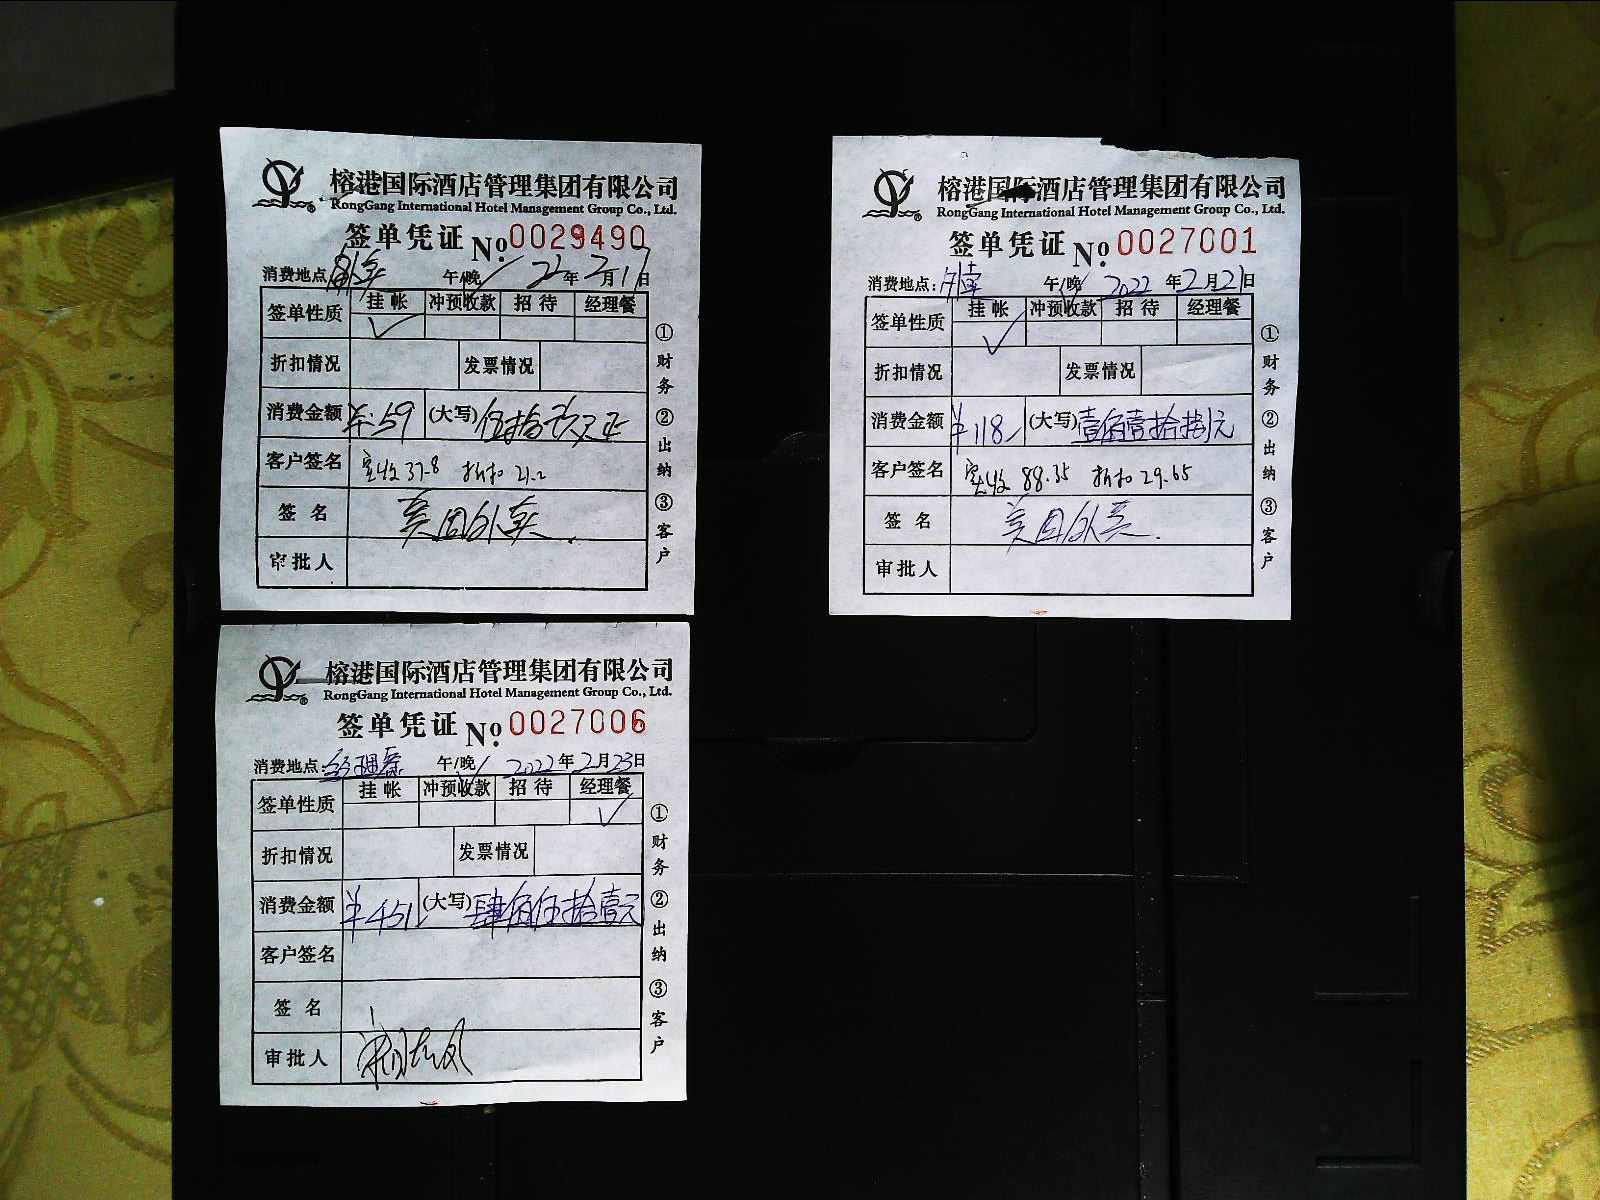 榕港国际酒店管理集团有限公司
RongGang International Hotel Management Group Co., Ltd.
签单凭证 No. 0029490
消费地点: 外卖 午/晚 ✓ 22年2月17日
签单性质 挂帐 冲预收款 招待 经理餐
✓
折扣情况 发票情况
消费金额 ¥:59 (大写) 伍拾玖元正
客户签名 实收37.8 折扣21.2
签名 美团外卖.
审批人
①财务 ②出纳 ③客户
榕港国际酒店管理集团有限公司
RongGang International Hotel Management Group Co., Ltd.
签单凭证 No. 0027001
消费地点: 外卖 午/晚 ✓ 2022年2月21日
签单性质 挂帐 冲预收款 招待 经理餐
✓
折扣情况 发票情况
消费金额 ¥118 (大写) 壹佰壹拾捌元
客户签名 实收 88.35 折扣 29.65
签名 美团外卖.
审批人
①财务 ②出纳 ③客户
榕港国际酒店管理集团有限公司
RongGang International Hotel Management Group Co., Ltd.
签单凭证 No. 0027006
消费地点: 经理餐 午/晚 ✓ 2022年2月23日
签单性质 挂帐 冲预收款 招待 经理餐
✓
折扣情况 发票情况
消费金额 ¥451 (大写) 肆佰伍拾壹元
客户签名
签名
审批人
①财务 ②出纳 ③客户